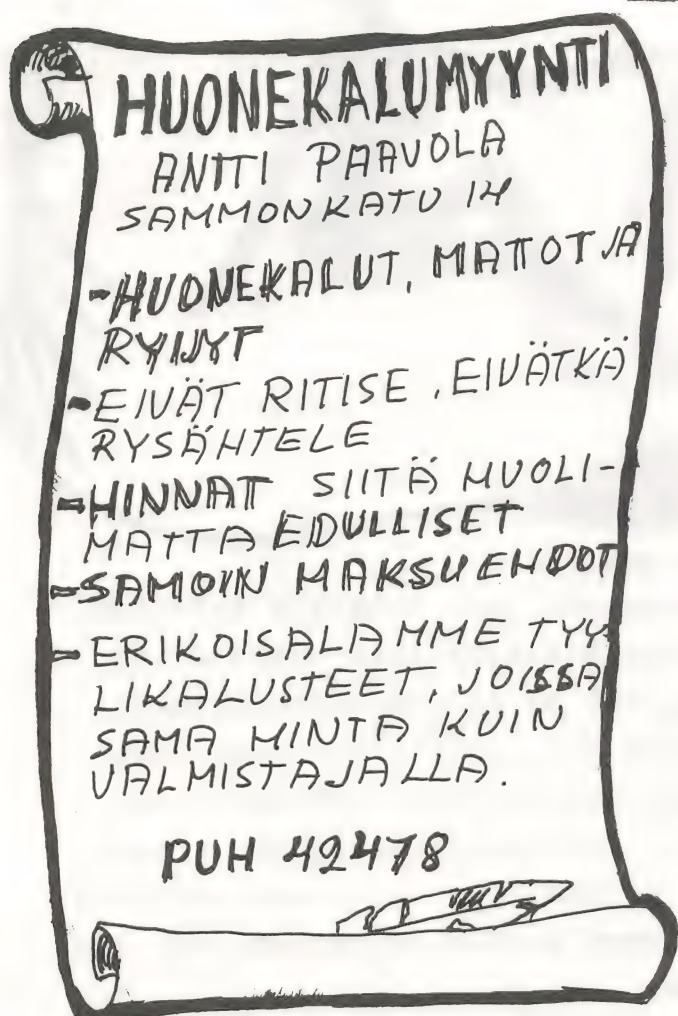 HUONEKALUMYYNTI
ANTTI PAAVOLA
SAMMONKATU 14
-HUONEKALUT, MATTOT JA
RYIJYT
-EIVÄT RITISE, EIVÄTKÄ
RYSÄHTELE
-HINNAT SIITÄ HUOLI-
MATTA EDULLISET
-SAMOIN MAKSUEHDOT
-ERIKOISALAMME TYY-
LIKALUSTEET, JOISSA
SAMA HINTA KUIN
VALMISTAJALLA.
PUH 42478